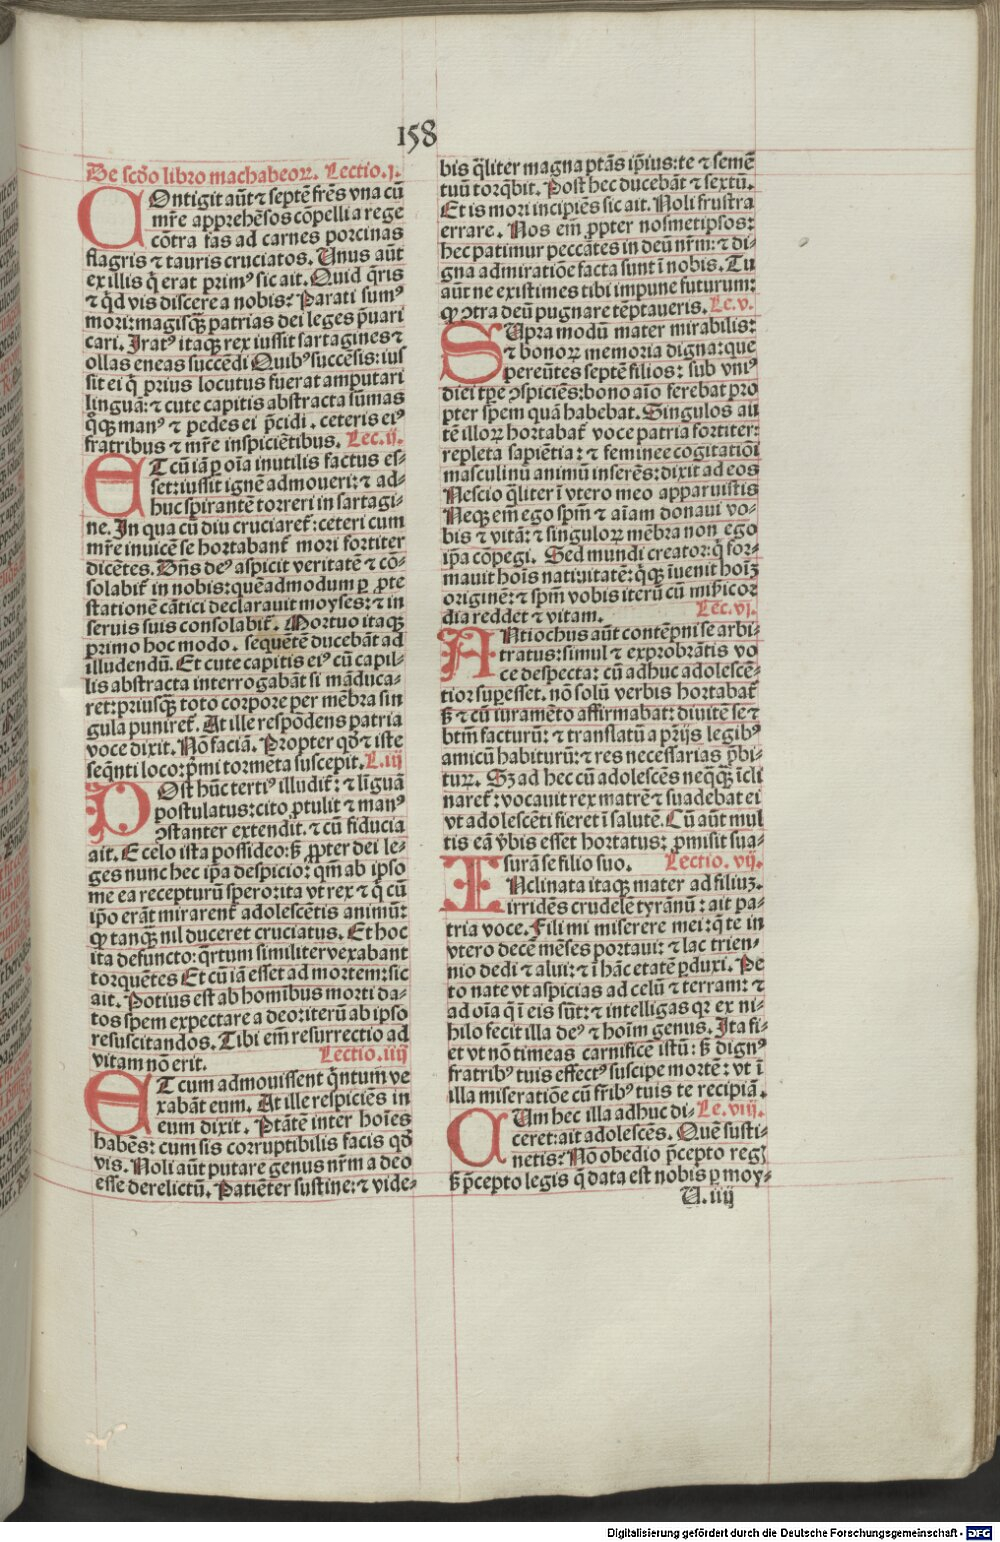 158
De scḋo libro machabeoꝝ. Lectio.j.
COntigit aūt ⁊ septē frēs vna cū
mr̄e apprehēsos cōpelli a rege
cōtra fas ad carnes porcinas
flagris ⁊ tauris cruciatos. Unus aūt
ex illis q̄ erat primꝰ sic ait. Quid q̄ris
⁊ qͥd vis discere a nobis? Parati sumꝰ
mori: magisqꝫ patrias dei leges p̄uari
cari. Iratꝰ itaqꝫ rex iussit sartagines ⁊
ollas eneas succēdi Quibꝰ succēsis: ius
sit ei q̄ prius locutus fuerat amputari
linguā: ⁊ cute capitis abstracta sūmas
qͦqꝫ manꝰ ⁊ pedes ei p̄cidi. ceteris eiꝰ
fratribus ⁊ mr̄e inspiciētibus. Lec.ii.
ET cū iā ꝑ oīa inutilis factus es-
set: iussit ignē admoueri: ⁊ ad-
huc spirantē torreri in sartagi-
ne. In qua cū diu cruciaret᷑: ceteri cum
mr̄e inuicē se hortabant᷑ mori fortiter
dicētes. Dn̄s deꝰ aspicit veritatē ⁊ cō-
solabit᷑ in nobis: quēadmodum ꝑ ꝓte
stationē cātici declarauit moyses: ⁊ in
seruis suis consolabit᷑. Mortuo itaqꝫ
primo hoc modo. sequētē ducebāt ad
illudendū. Et cute capitis eiꝰ cū capil-
lis abstracta interrogabāt si māduca-
ret: priusqꝫ toto corpore per mēbra sin
gula puniret᷑. At ille respōdens patria
voce dixit. Nō faciā. Propter qḋ ⁊ iste
seq̄nti loco: p̄mi tormēta suscepit. L.iij
POst hūc tertiꝰ illudit᷑: ⁊ līguā
postulatus: cito ꝓtulit ⁊ manꝰ
ꝯstanter extendit. ⁊ cū fiducia
ait. E celo ista possideo: sꝫ ꝓpter dei le-
ges nunc hec ip̄a despicio: qm̄ ab ipso
me ea recepturū spero: ita vt rex ⁊ q̄ cū
ip̄o erāt mirarent᷑ adolescētis animū:
qꝫ tanqꝫ nil duceret cruciatus. Et hoc
ita defuncto: qͣrtum similiter vexabant
torquētes Et cū iā esset ad mortem: sic
ait. Potius est ab homībus morti da-
tos spem expectare a deo: iterū ab ipso
resuscitandos. Tibi em̄ resurrectio ad
vitam nō erit. Lectio.iiij
ET cum admouissent qͥntum ve
xabāt eum. At ille respiciēs in
eum dixit. Ptātē inter hoīes
habēs: cum sis corruptibilis facis qḋ
vis. Noli aūt putare genus nr̄m a deo
esse derelictū. Patiēter sustine: ⁊ vide-
bis qͣliter magna ptās ip̄ius: te ⁊ semē
tuū torqͣbit. Post hec ducebāt ⁊ sextū.
Et is mori incipiēs sic ait. Noli frustra
errare. Nos em̄ ꝓpter nosmetipsos:
hec patimur peccātes in deū nr̄m: ⁊ di-
gna admiratiōe facta sunt ī nobis. Tu
aūt ne existimes tibi impune futurum:
qꝫ ꝯtra deū pugnare tēptaueris. Lc.v.
SUpra modū mater mirabilis:
⁊ bonoꝝ memoria digna: que
pereūtes septē filios: sub vniꝰ
diei tꝑe ꝯspiciēs: bono aīo ferebat pro
pter spem quā habebat. Singulos au
tē illoꝝ hortabat᷑ voce patria fortiter:
repleta sapiētia: ⁊ feminee cogitatiōi
masculinū animū inserēs: dixit ad eos
Nescio qͣliter ī vtero meo apparuistis
Neqꝫ em̄ ego spm̄ ⁊ aīam donaui vo-
bis ⁊ vitā: ⁊ singuloꝝ mēbra non ego
ip̄a cōpegi. Sed mundi creator: q̄ for-
mauit hoīs natiuitatē: q̄qꝫ īuenit hoīꝫ
originē: ⁊ spm̄ vobis iterū cū mīsͥicor
dia reddet ⁊ vitam. Lec.vj.
ANtiochus aūt contēpni se arbi-
tratus: simul ⁊ exprobrātis vo
ce despecta: cū adhuc adolescē-
tior superesset. nō solū verbis hortabat᷑
sꝫ ⁊ cū iuramēto affirmabat: diuitē se ⁊
btm̄ facturū: ⁊ translatū a prijs legibꝰ
amicū habiturū: ⁊ res necessarias p̄bi-
tuꝝ. Sꝫ ad hec cū adolescēs neqͣqꝫ īcli
naret᷑: vocauit rex matrē ⁊ suadebat ei
vt adolescēti fieret ī salutē. Cū aūt mul
tis eā v̄bis esset hortatus: ꝓmisit sua-
surā se filio suo. Lectio.vij.
INclinata itaqꝫ mater ad filiuꝫ.
irridēs crudelē tyrānū: ait pa-
tria voce. Fili mi miserere mei: q̄ te in
vtero decē mēses portaui: ⁊ lac trien-
nio dedi ⁊ alui: ⁊ ī hāc etatē ꝑduxi. Pe
to nate vt aspicias ad celū ⁊ terram: ⁊
ad oīa q̄ ī eis sūt: ⁊ intelligas qꝛ ex ni-
hilo fecit illa deꝰ ⁊ hoīm genus. Ita fi-
et vt nō timeas carnificē istū: sꝫ dignꝰ
fratribꝰ tuis effectꝰ suscipe mortē: vt ī
illa miseratiōe cū fr̄ibꝰ tuis te recipiā.
CUm hec illa adhuc di- Le.viij.
ceret: ait adolescēs. Quē susti-
netis? Nō obedio p̄cepto regꝭ
sꝫ p̄cepto legis q̄ data est nobis ꝑ moy-
U.iiij
Digitalisierung gefördert durch die Deutsche Forschungsgemeinschaft - DFG